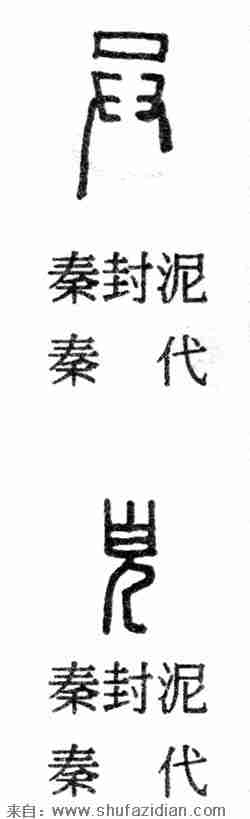 秦封泥
秦 代
秦封泥
秦 代
来自：www.shufazidian.com